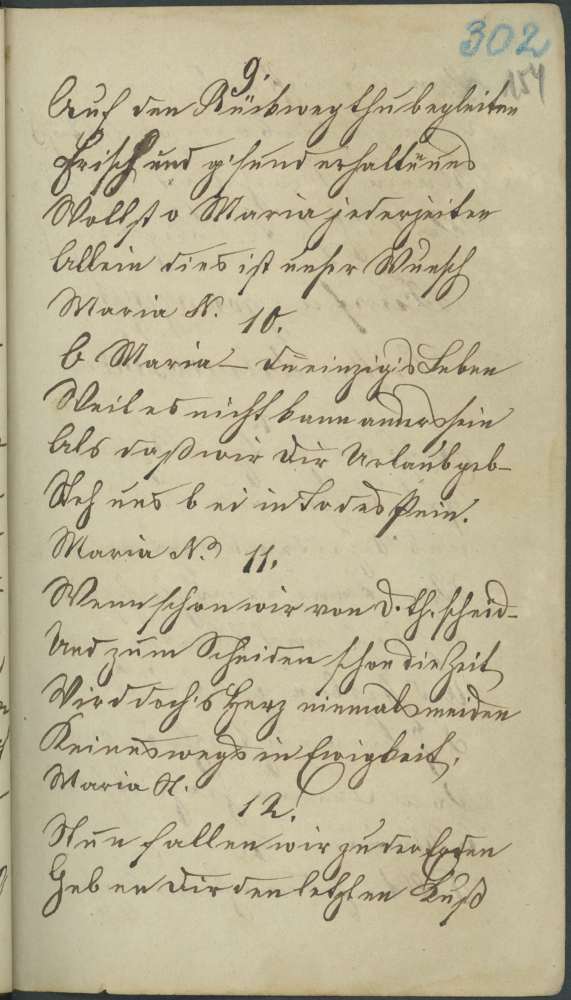 302
154
9.
Auf den Rückweg thu begleiten
Frisch und g'sund erhalt uns
Wollst o Maria jederzeiten
Allein dies ist unser Wunsch
Maria N.
10.
O Maria du einzig's Leben
Weil es nicht kann anders sein
Als daß wir Dir Urlaub geb-
Steh uns bei in Todes Pein.
Maria N.
11.
Wenn schon wir von D. th. scheid-
Und zum Scheiden schon die Zeit
Wird doch's Herz niemals meiden
Keineswegs in Ewigkeit.
Maria N.
12.
Nun fallen wir zu der Erden
Geben Dir den letzten Kuß